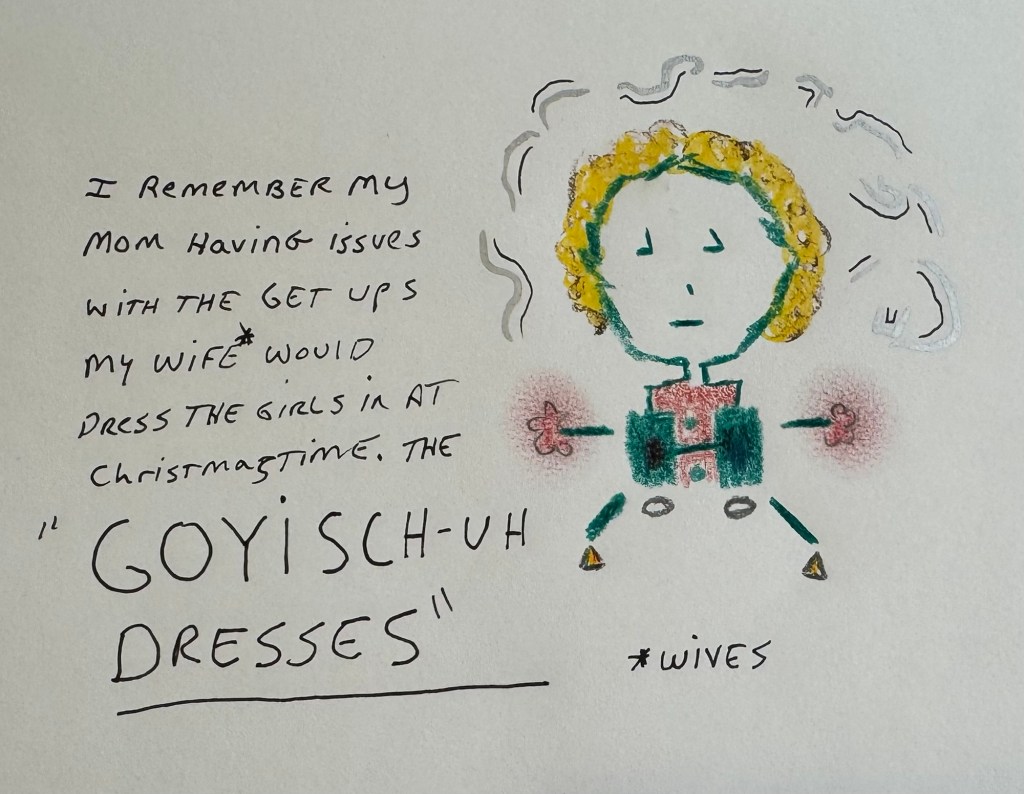 I REMEMBER MY
MOM HAVING ISSUES
WITH THE GET UPS
MY WIFE* WOULD
DRESS THE GIRLS IN AT
CHRISTMASTIME. THE
"GOYISCH-UH
DRESSES"
*WIVES